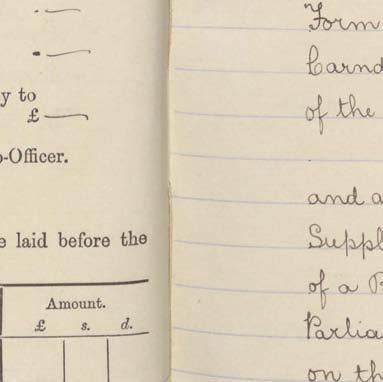 y to
£
-Officer.
e laid before the
Amount.
£ s. d.
Form
of the
and a
Suppl
of a
Parlia
on th